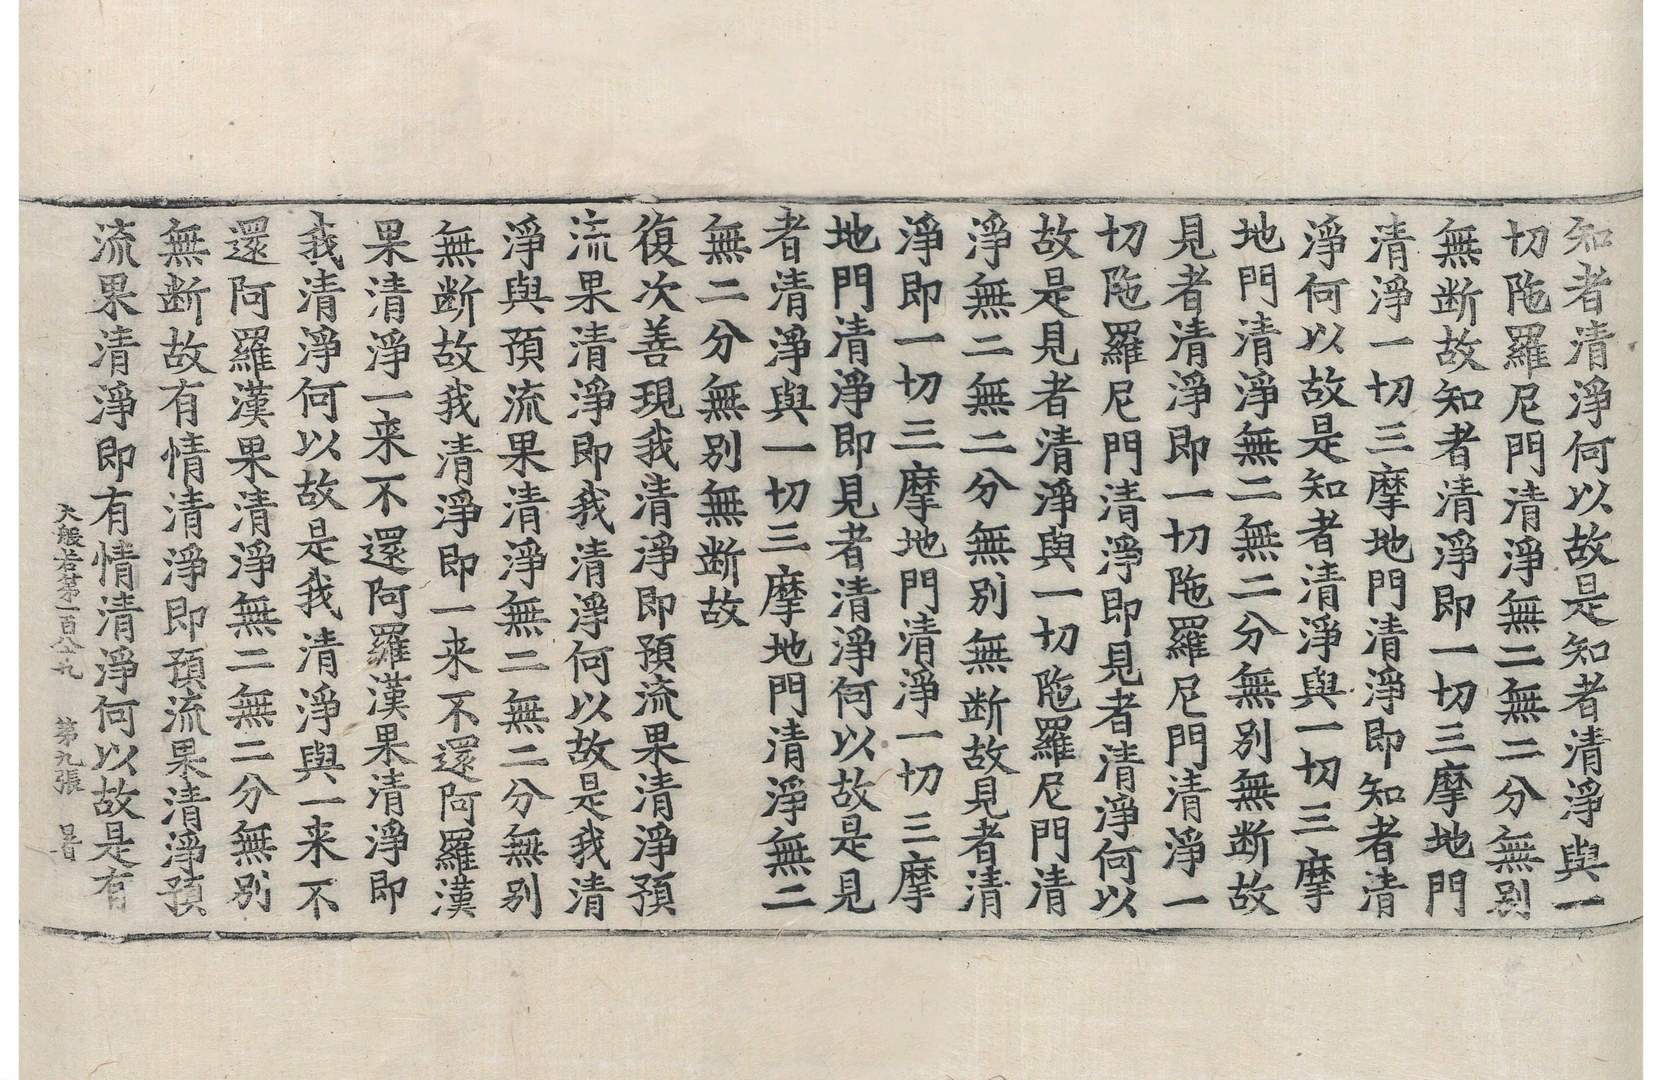 知者清淨何以故是知者清淨與一
切陁羅尼門清淨無二無二分無別
無断故知者清淨即一切三摩地門
清淨一切三摩地門清淨即知者清
淨何以故是知者清淨與一切三摩
地門清淨無二無二分無別無断故
見者清淨即一切陁羅尼門清淨一
切陁羅尼門清淨即見者清淨何以
故是見者清淨與一切陁羅尼門清
淨無二無二分無別無断故見者清
淨即一切三摩地門清淨一切三摩
地門清淨即見者清淨何以故是見
者清淨與一切三摩地門清淨無二
無二分無別無断故
復次善現我清淨即預流果清淨預
流果清淨即我清淨何以故是我清
淨與預流果清淨無二無二分無別
無断故我清淨即一来不還阿羅漢
果清淨一来不還阿羅漢果清淨即
我清淨何以故是我清淨與一来不
還阿羅漢果清淨無二無二分無別
無断故有情清淨即預流果清淨預
流果清淨即有情清淨何以故是有
大般若第一百八十九 第九張 暑